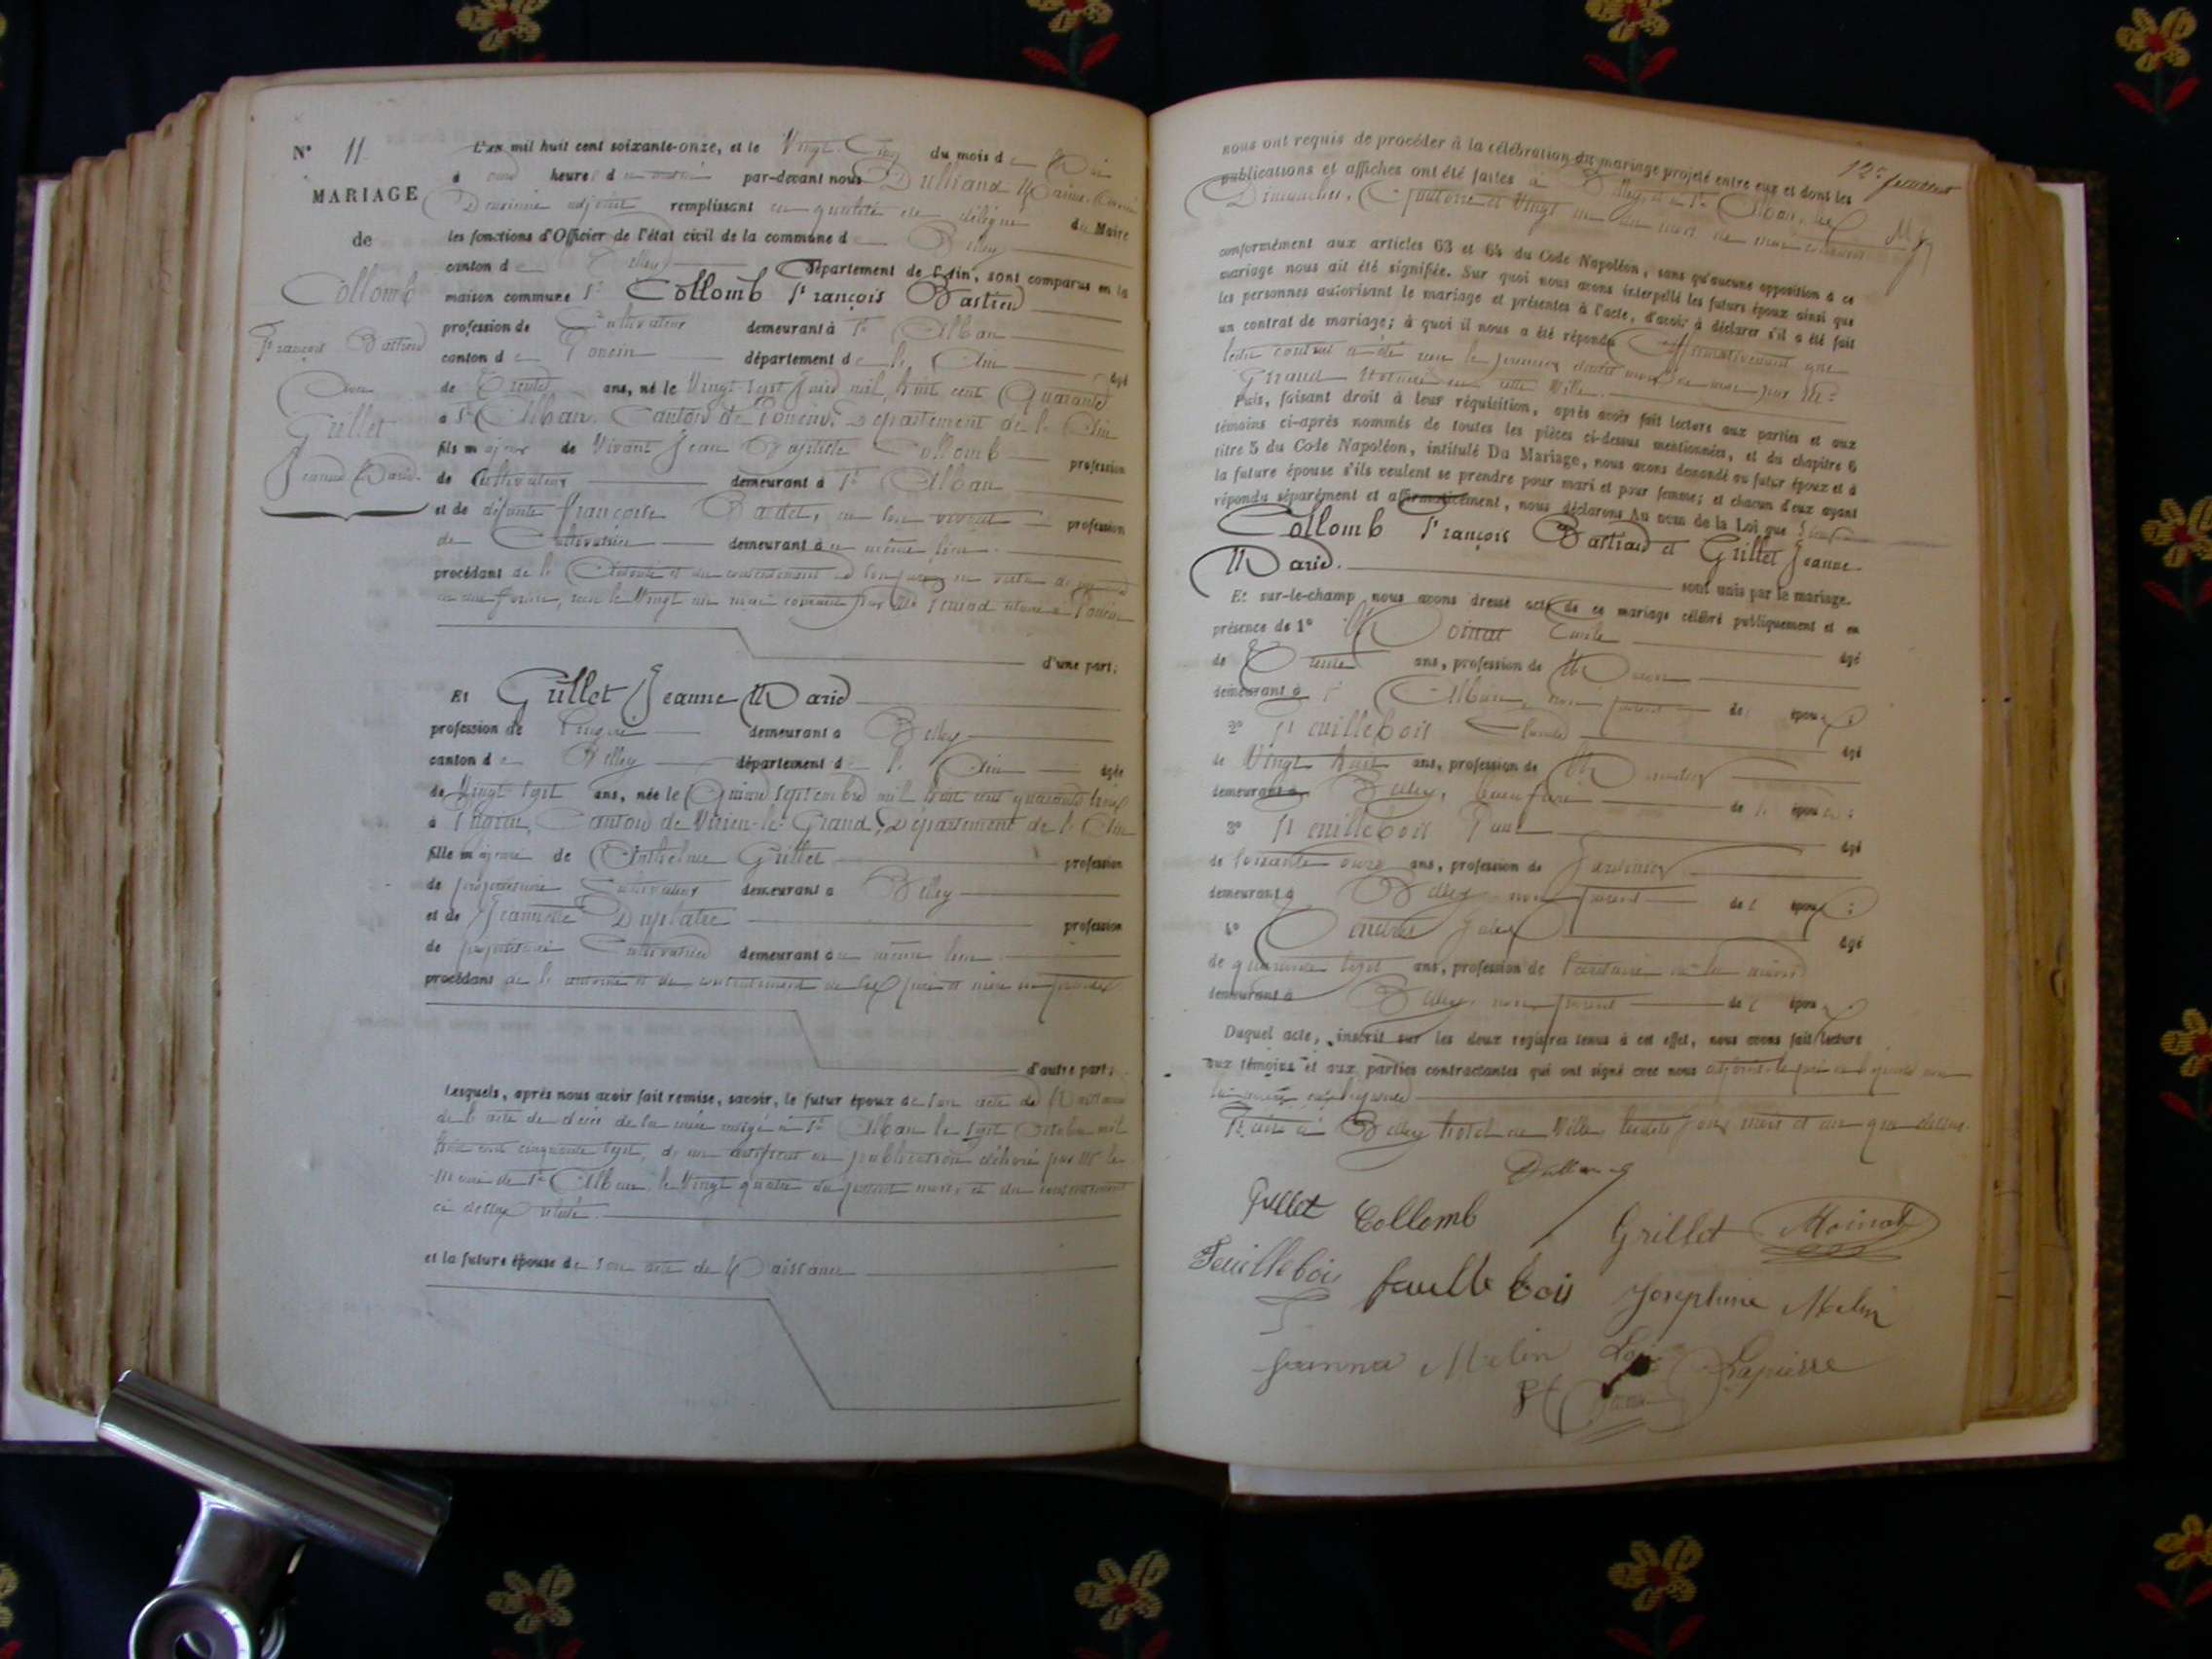 N° 11
MARIAGE
de
Collomb
François Bastien
Avec
Grillet
Jeanne Marie
L'an mil huit cent soixante-onze, et le Vingt Cinq du mois de
à heure d par-devant nous
Deuxième adjoint remplissant en qualité de délégué du Maire
les fonctions d'Officier de l'état civil de la commune de Belley
canton de Belley Département de l'Ain, sont comparus en la
maison commune Sr Collomb François Bastien
profession de Cultivateur demeurant à St Alban
canton de Poncin département de l'Ain âgé
de Trente ans, né le Vingt sept Juin mil huit cent Quarante
à St Alban, Canton de Poncin, Département de l'Ain
fils majeur de Vivant Jean Baptiste Collomb profession
de Cultivateur demeurant à St Alban
et de défunte Françoise Badet, en son vivant profession
de Cultivatrice demeurant au même lieu
procédant de l'Autorité et du consentement de son père en vertu de
en due forme, reçu le Vingt un mai courant par Me notaire à Poncin
d'une part;
Et Grillet Jeanne Marie
profession de Lingère demeurant à Belley
canton de Belley département de l'Ain âgée
de Vingt sept ans, née le Quinze Septembre mil huit cent quarante trois
à Pugieu, Canton de Virieu-le-Grand, Département de l'Ain
fille majeure de Anthelme Grillet profession
de propriétaire Cultivateur demeurant à Belley
et de Jeannette Duplatre profession
de propriétaire Cultivatrice demeurant au même lieu
procédant de l'autorité et du consentement de ses père et mère ici présents
d'autre part;
Lesquels, après nous avoir fait remise, savoir, le futur époux de son acte de Naissance
de l'acte de décès de sa mère rédigé à St Alban le sept Octobre mil
huit cent cinquante sept, d'un certificat de publication délivré par Mr le
Maire de St Alban, le Vingt quatre du présent mois, et du consentement
ci dessus relaté.
et la future épouse de son acte de Naissance
12e feuillet
nous ont requis de procéder à la célébration du mariage projeté entre eux et dont les
publications et affiches ont été faites à Belley, et à St Alban, les
Dimanches, Quatorze et Vingt un du mois de mai courant
conformément aux articles 63 et 64 du Code Napoléon, sans qu'aucune opposition à ce
mariage nous ait été signifiée. Sur quoi nous avons interpellé les futurs époux ainsi que
les personnes autorisant le mariage et présentes à l'acte, d'avoir à déclarer s'il a été fait
un contrat de mariage; à quoi il nous a été répondu Affirmativement que
ledit contrat a été reçu le premier dudit mois de mai par Me
Giraud Notaire en cette Ville.
Puis, faisant droit à leur réquisition, après avoir fait lecture aux parties et aux
témoins ci-après nommés de toutes les pièces ci-dessus mentionnées, et du chapitre 6
titre 5 du Code Napoléon, intitulé Du Mariage, nous avons demandé au futur époux et à
la future épouse s'ils veulent se prendre pour mari et pour femme; et chacun d'eux ayant
répondu séparément et affirmativement, nous déclarons Au nom de la Loi que
Collomb François Bastien et Grillet Jeanne
Marie.
sont unis par le mariage.
Et sur-le-champ nous avons dressé acte de ce mariage célébré publiquement et en
présence de 1° Moinat Emile âgé
de Trente ans, profession de Maçon
demeurant à St Alban, non parent de époux;
2° Feuillebois Claude âgé
de Vingt huit ans, profession de
demeurant à Belley, beau frère de l'épouse;
3° Feuillebois Paul âgé
de soixante onze ans, profession de Jardinier
demeurant à Belley non parent de époux;
4° Jules âgé
de quarante sept ans, profession de Secrétaire de la mairie
demeurant à Belley, non parent de époux.
Duquel acte, inscrit sur les deux registres tenus à cet effet, nous avons fait lecture
aux témoins et aux parties contractantes qui ont signé avec nous
Fait à Belley hôtel de Ville, lesdits jour, mois et an que dessus.
Grillet Collomb Grillet Moinat
Feuillebois feuillebois Josephine Melin
Jeanna Melin Lapierre